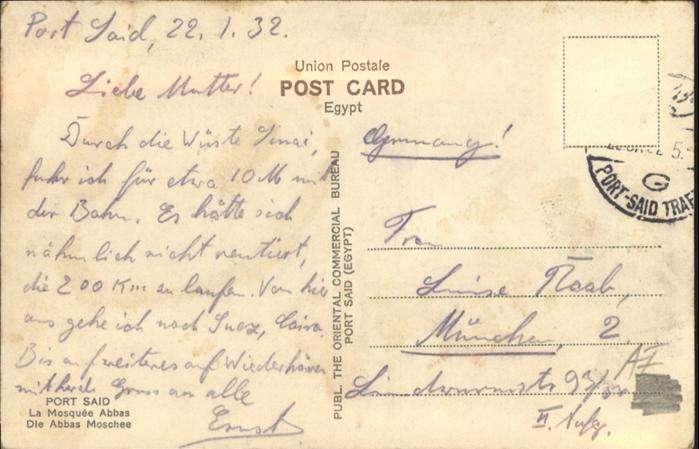 Port Said, 22.1.32.
Liebe Mutter!
Durch die Wüste Sinai,
fuhr ich für etwa 10 M mit
der Bahn. Es hätte sich
nähmlich nicht rentiert,
die 200 Km zu laufen. Von hier
aus gehe ich nach Suez, Cairo.
Bis auf weiteres auf Wiederhören
mit herzl. Gruss an alle
Ernst
PORT SAID
La Mosquée Abbas
Die Abbas Moschee
PUBL. THE ORIENTAL COMMERCIAL BUREAU
PORT SAID (EGYPT)
Union Postale
POST CARD
Egypt
Germany!
Frau
Luise Raab,
München, 2
Lindwurmstr
II. Aufg.
AF
PORT-SAID TRAF